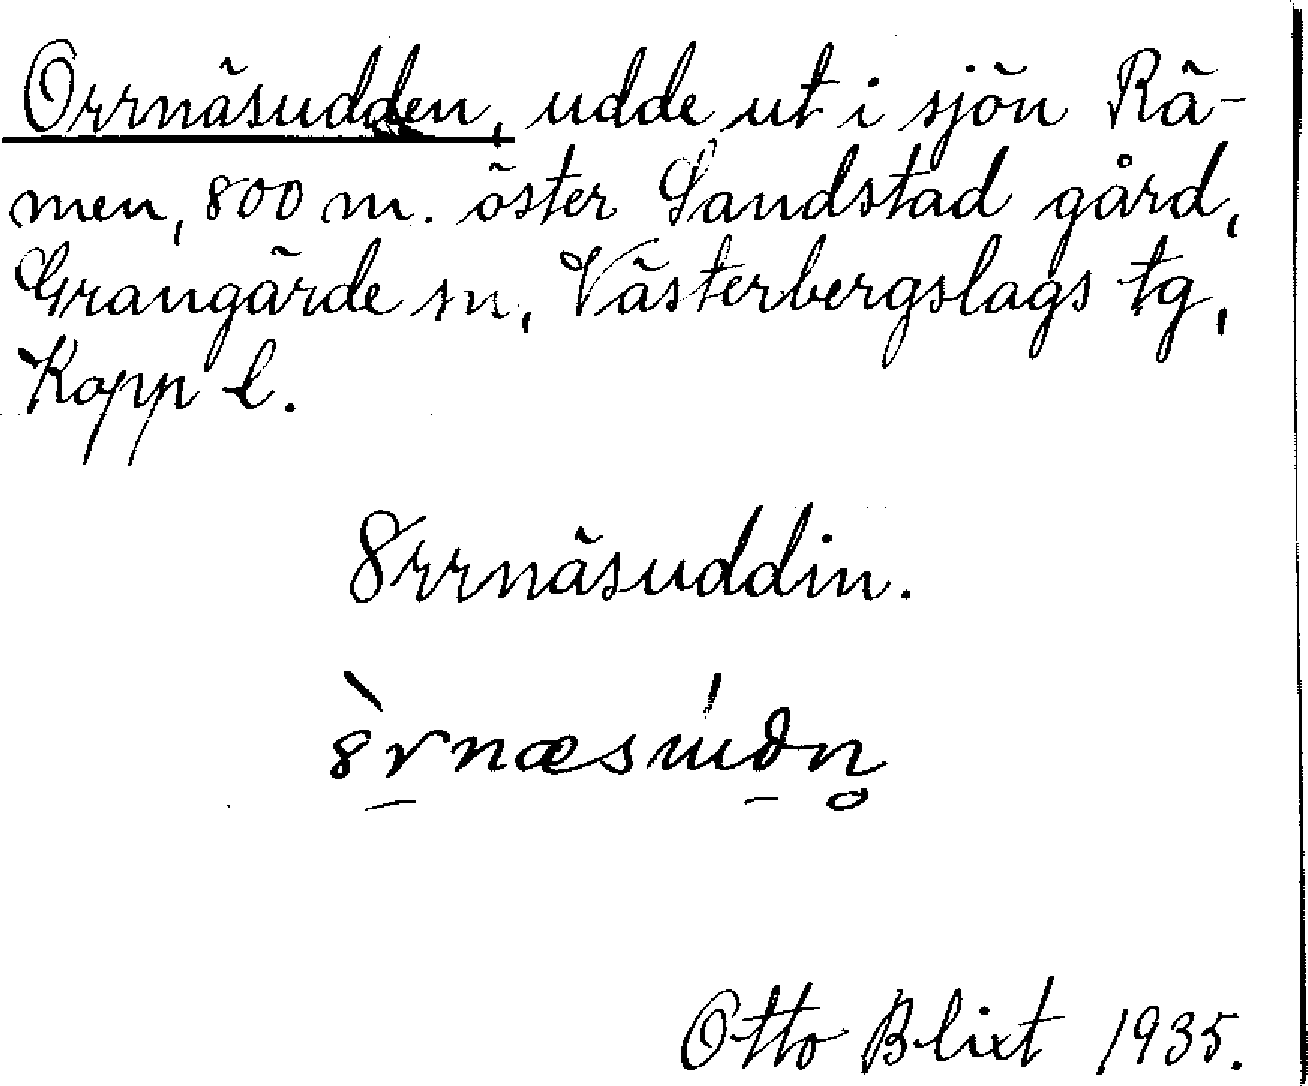 Orrnäsudden, udde ut i sjön Rä-
men, 800 m. öster Sandstad gård,
Grangärde sn, Västerbergslags tg,
Kopp l.
8rrnäsuddin.
8̀r̲næsúd̲n̥
Otto Blixt 1935.